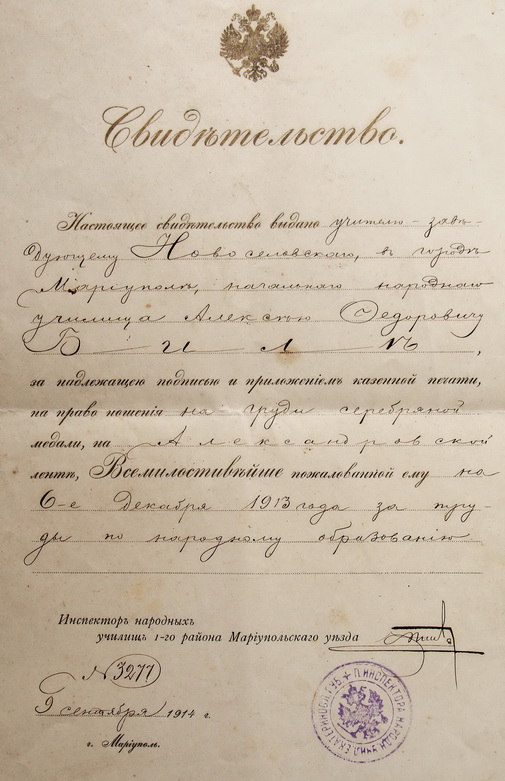 Свидѣтельство.
Настоящее свидѣтельство выдано учителю-завѣ-
дующему Новоселовскаго, въ городѣ
Маріуполѣ, начальнаго народнаго
училища Алексѣю Ѳедоровичу
Б И Л Ѣ,
за надлежащею подписью и приложеніемъ казенной печати,
на право ношенія на груди серебряной
медали, на Александровской
лентѣ, Всемилостивѣйше пожалованной ему на
6-е Декабря 1913 года за тру-
ды по народному образованію
Инспекторъ народныхъ
училищъ 1-го района Маріупольскаго уѣзда
№ 3277
9 сентября 1914 г.
г. Маріуполь.
ИНСПЕКТОРА НАРОДН. УЧИЛ. ЕКАТЕРИНОСЛ. ГУБ.